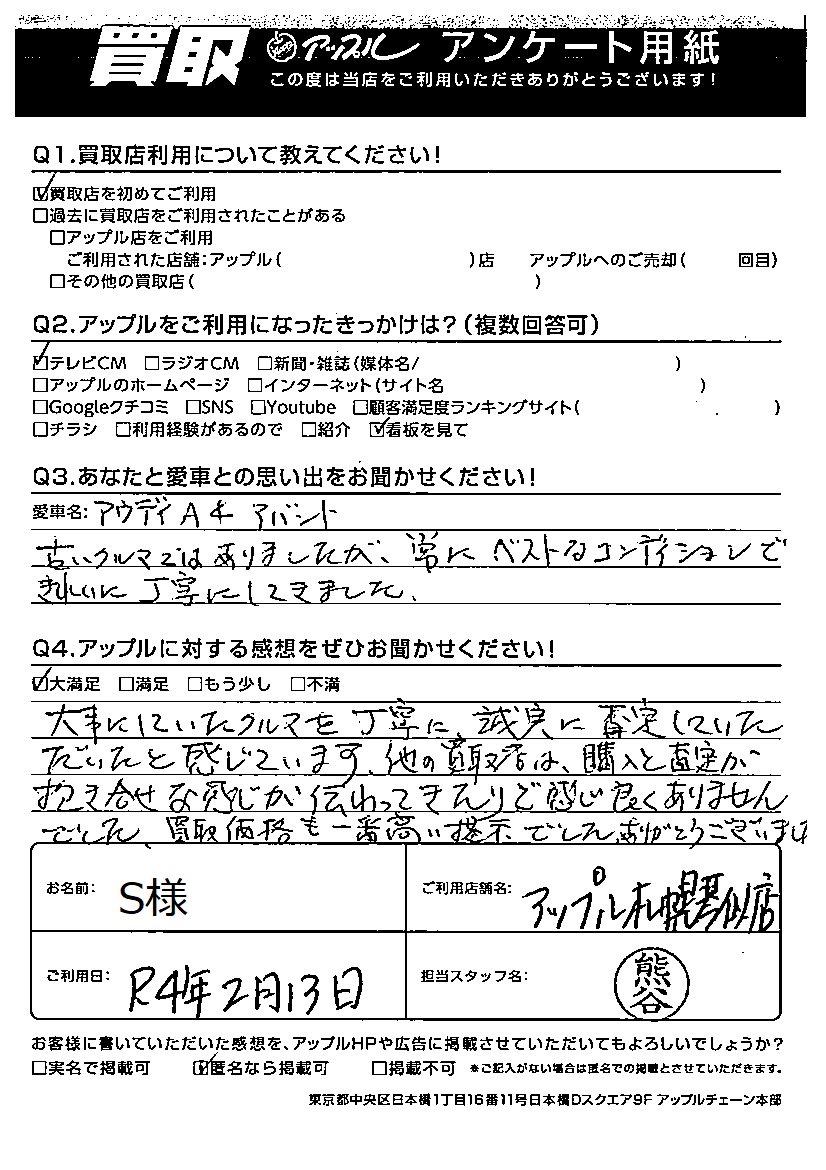 買取 アップル アンケート用紙
この度は当店をご利用いただきありがとうございます！
Q1.買取店利用について教えてください！
☑買取店を初めてご利用
□過去に買取店をご利用されたことがある
□アップル店をご利用
ご利用された店舗：アップル（　）店　アップルへのご売却（　回目）
□その他の買取店（　）
Q2.アップルをご利用になったきっかけは？（複数回答可）
☑テレビCM □ラジオCM □新聞・雑誌（媒体名/　）
□アップルのホームページ □インターネット（サイト名　）
□Googleクチコミ □SNS □Youtube □顧客満足度ランキングサイト（　）
□チラシ □利用経験があるので □紹介 ☑看板を見て
Q3.あなたと愛車との思い出をお聞かせください！
愛車名：アウディ A4 アバント
古いクルマではありましたが、常にベストなコンディションで
きれいに丁寧にしてきました.
Q4.アップルに対する感想をぜひお聞かせください！
☑大満足 □満足 □もう少し □不満
大事にしていたクルマを丁寧に、誠実に査定していた
だいたと感じています.他の買取店は、購入と査定が
抱き合せな感じが伝わってきたりで感じ良くありません
でした、買取価格も一番高い提示でした.ありがとうございました
お名前： S様
ご利用店舗名： アップル札幌琴似店
ご利用日： R4年2月13日
担当スタッフ名： 熊谷
お客様に書いていただいた感想を、アップルHPや広告に掲載させていただいてもよろしいでしょうか？
□実名で掲載可 ☑匿名なら掲載可 □掲載不可 ※ご記入がない場合は匿名での掲載とさせていただきます。
東京都中央区日本橋1丁目16番11号日本橋Dスクエア9F アップルチェーン本部